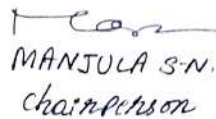 MANJULA S.N.
Chairperson